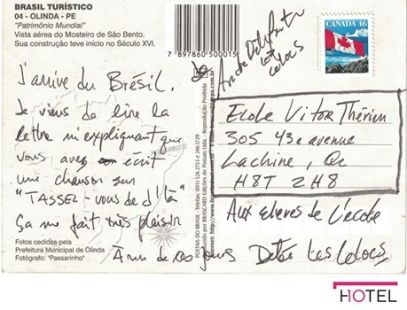 BRASIL TURÍSTICO
04 - OLINDA - PE
"Patrimônio Mundial"
Vista aérea do Mosteiro de São Bento.
Sua construção teve início no Século XVI.
7 897860 500015
CANADA 46
J'arrive du Brésil.
Je viens de lire la
lettre m'expliquant que
vous avez écrit
une chanson sur
"TASSEZ-vous de d'là"
Ça me fait très plaisir
À un de ces jours Dédé Les Colocs
École Victor Thérien
305 43e avenue
Lachine, Qc
H8T 2H8
Aux élèves de l'école
Fotos cedidas pela
Prefeitura Municipal de Olinda
Fotógrafo: "Passarinho"
HOTEL